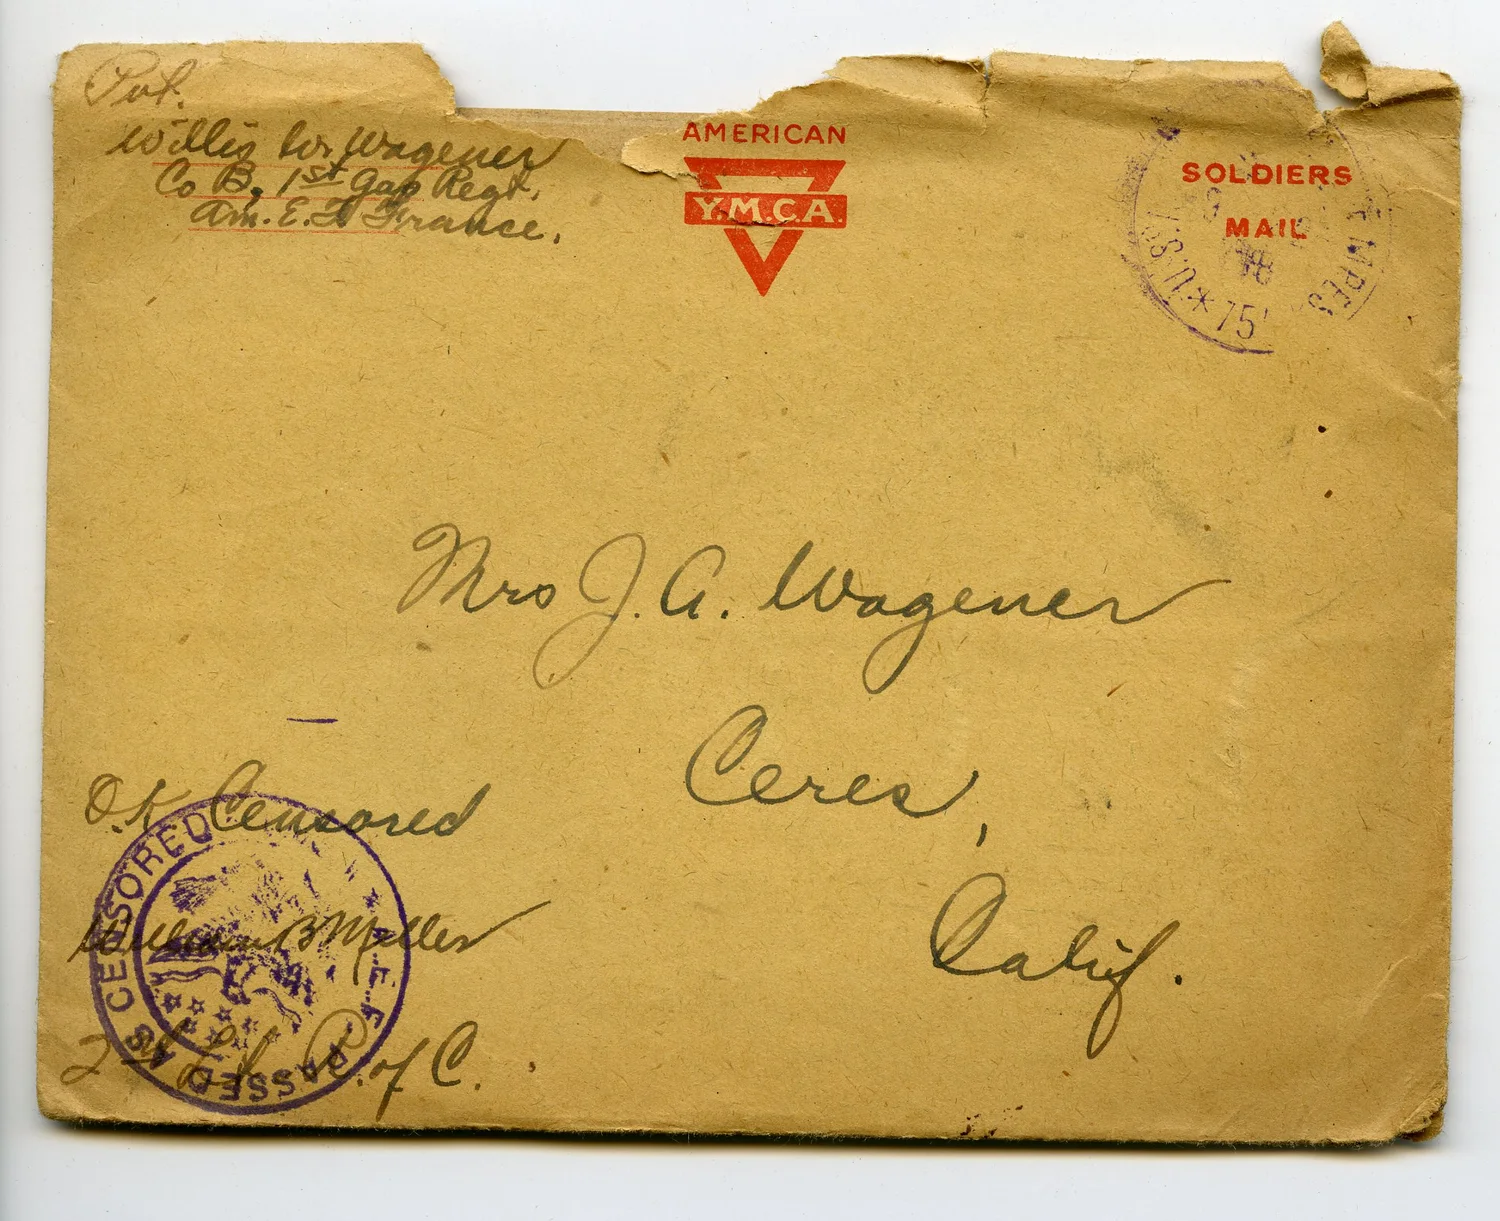 Pvt.
Willis W. Wagener
Co B, 1st Gas Regt.
Am. E. F. France.
AMERICAN
Y.M.C.A.
SOLDIERS
MAIL
U.S.
* 75
18
Mrs J. A. Wagener
Ceres,
Calif.
O.K Censored
William B Miller
2nd Lt R. of C.
PASSED AS CENSORED
* A.E.F.